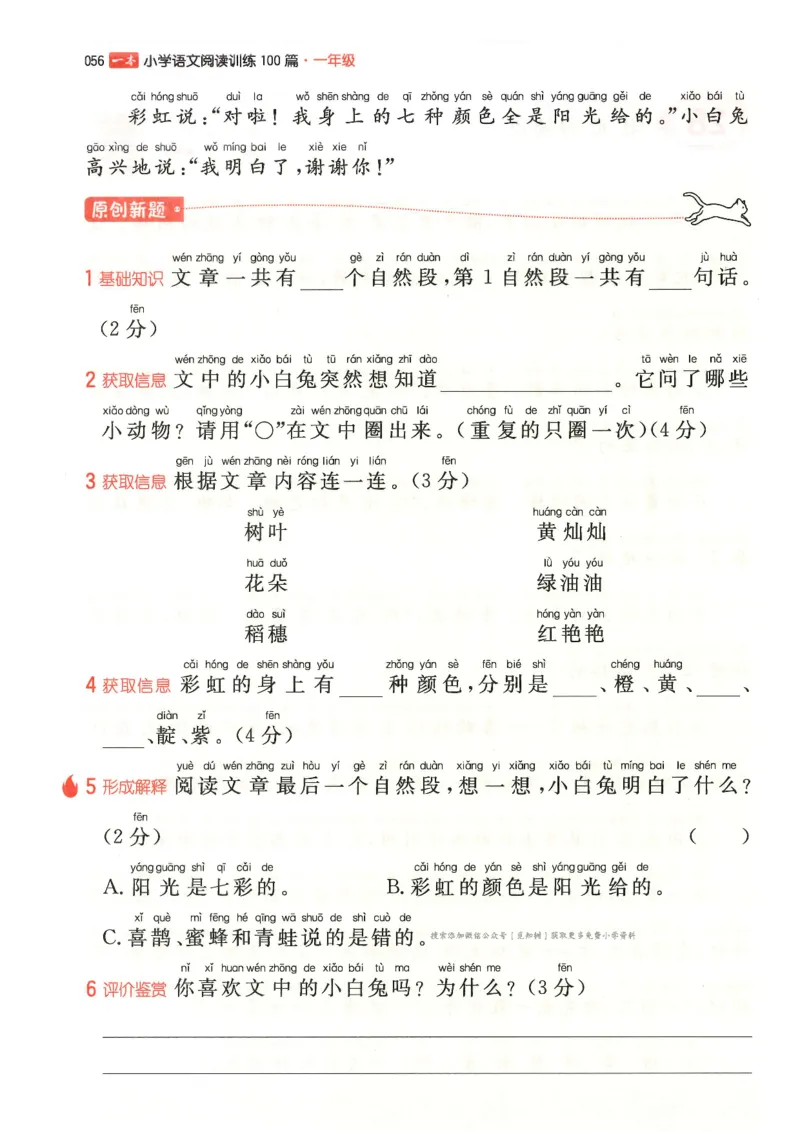 056 一本 小学语文阅读训练100篇·一年级
cǎi hóng shuō duì la wǒ shēn shàng de qī zhǒng yán sè quán shì yáng guāng gěi de xiǎo bái tù
彩虹说:“对啦！我身上的七种颜色全是阳光给的。”小白兔
gāo xìng de shuō wǒ míng bai le xiè xie nǐ
高兴地说:“我明白了,谢谢你！”
原创新题
wén zhāng yí gòng yǒu gè zì rán duàn dì zì rán duàn yí gòng yǒu jù huà
1 基础知识 文章一共有____个自然段,第1自然段一共有____句话。
fēn
(2分)
wén zhōng de xiǎo bái tù tū rán xiǎng zhī dào tā wèn le nǎ xiē
2 获取信息 文中的小白兔突然想知道______________。它问了哪些
xiǎo dòng wù qǐng yòng zài wén zhōng quān chū lái chóng fù de zhǐ quān yí cì fēn
小动物？请用“○”在文中圈出来。(重复的只圈一次)(4分)
gēn jù wén zhāng nèi róng lián yi lián fēn
3 获取信息 根据文章内容连一连。(3分)
shù yè huáng càn càn
树叶 黄灿灿
huā duǒ lǜ yóu yóu
花朵 绿油油
dào suì hóng yàn yàn
稻穗 红艳艳
cǎi hóng de shēn shàng yǒu zhǒng yán sè fēn bié shì chéng huáng
4 获取信息 彩虹的身上有____种颜色,分别是____、橙、黄、____、
diàn zǐ fēn
____、靛、紫。(4分)
yuè dú wén zhāng zuì hòu yí gè zì rán duàn xiǎng yi xiǎng xiǎo bái tù míng bai le shén me
5 形成解释 阅读文章最后一个自然段,想一想,小白兔明白了什么？
fēn
(2分) ( )
yáng guāng shì qī cǎi de cǎi hóng de yán sè shì yáng guāng gěi de
A.阳光是七彩的。 B.彩虹的颜色是阳光给的。
xǐ què mì fēng hé qīng wā shuō de shì cuò de
C.喜鹊、蜜蜂和青蛙说的是错的。搜索添加微信公众号[觅知树]获取更多免费小学资料
nǐ xǐ huan wén zhōng de xiǎo bái tù ma wèi shén me fēn
6 评价鉴赏 你喜欢文中的小白兔吗？为什么？(3分)